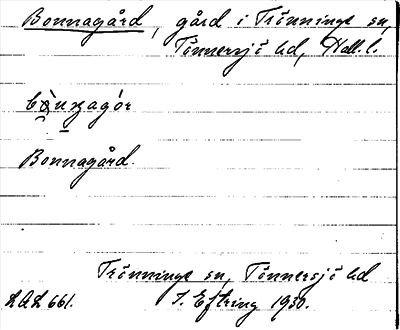 Bonnagård, gård i Trönninge sn,
Tönnersjö hd, Hall. l.
Bonnagård.
Trönninge sn, Tönnersjö hd
LAL 661. I. Eftring 1930.